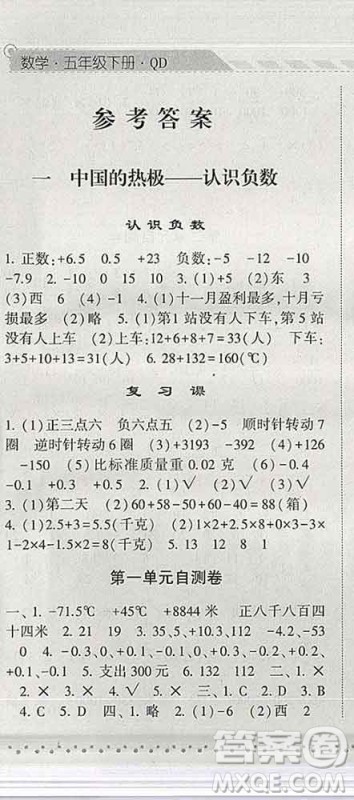 数学·五年级下册·QD
参考答案
一 中国的热极——认识负数
认识负数
1. 正数:+6.5 0.5 +23 负数:-5 -12
-7.9 2. -10 0 15 10 3. (1)+5 (2)东 3
(3)西 6 4. (1)十一月盈利最多,十月亏
损最多 (2)略 5. (1)第1站没有人下车,第5站
没有人上车 (2)上车:12+6+8+7=33(人) 下车:
3+5+10+13=31(人) 6. 28+132=160(℃)
复习课
1. (1)正三点六 负六点五 (2)-5 顺时针转动7
圈 逆时针转动6圈 (3)+3193 -392 (4)+126
-150 (5)比标准质量重0.02克 (6)-0.4
-0.1 +0.3 +0.5 2. (1)√ (2)√
3. (1)第二天 (2)60+58+50-40-40=88(箱)
4. (1)2.5+3=5.5(千克) (2)1×2.5+0×8-0.3×3-
1-2×2×3=1.8(千克) 5. 13 12 8 1
第一单元自测卷
一、1. -71.5℃ +45℃ +8844米 正八千八百四
十四米 2. 19 14 3. 2 -2 4. -4.2,-53
0 4. -0.3,0,+0.1,-0.1,+0.3,-0.2,0,+0.2,
+0.1,-0.1 5. 支出300元 6. 132 112 二、1.
2. × 3. × 4. √ 5. × 三、1. A 2. C 3. B
4. C 5. D 四、1. 略 2. (1)0 (2)西 2
答案圈
MXQE.COM